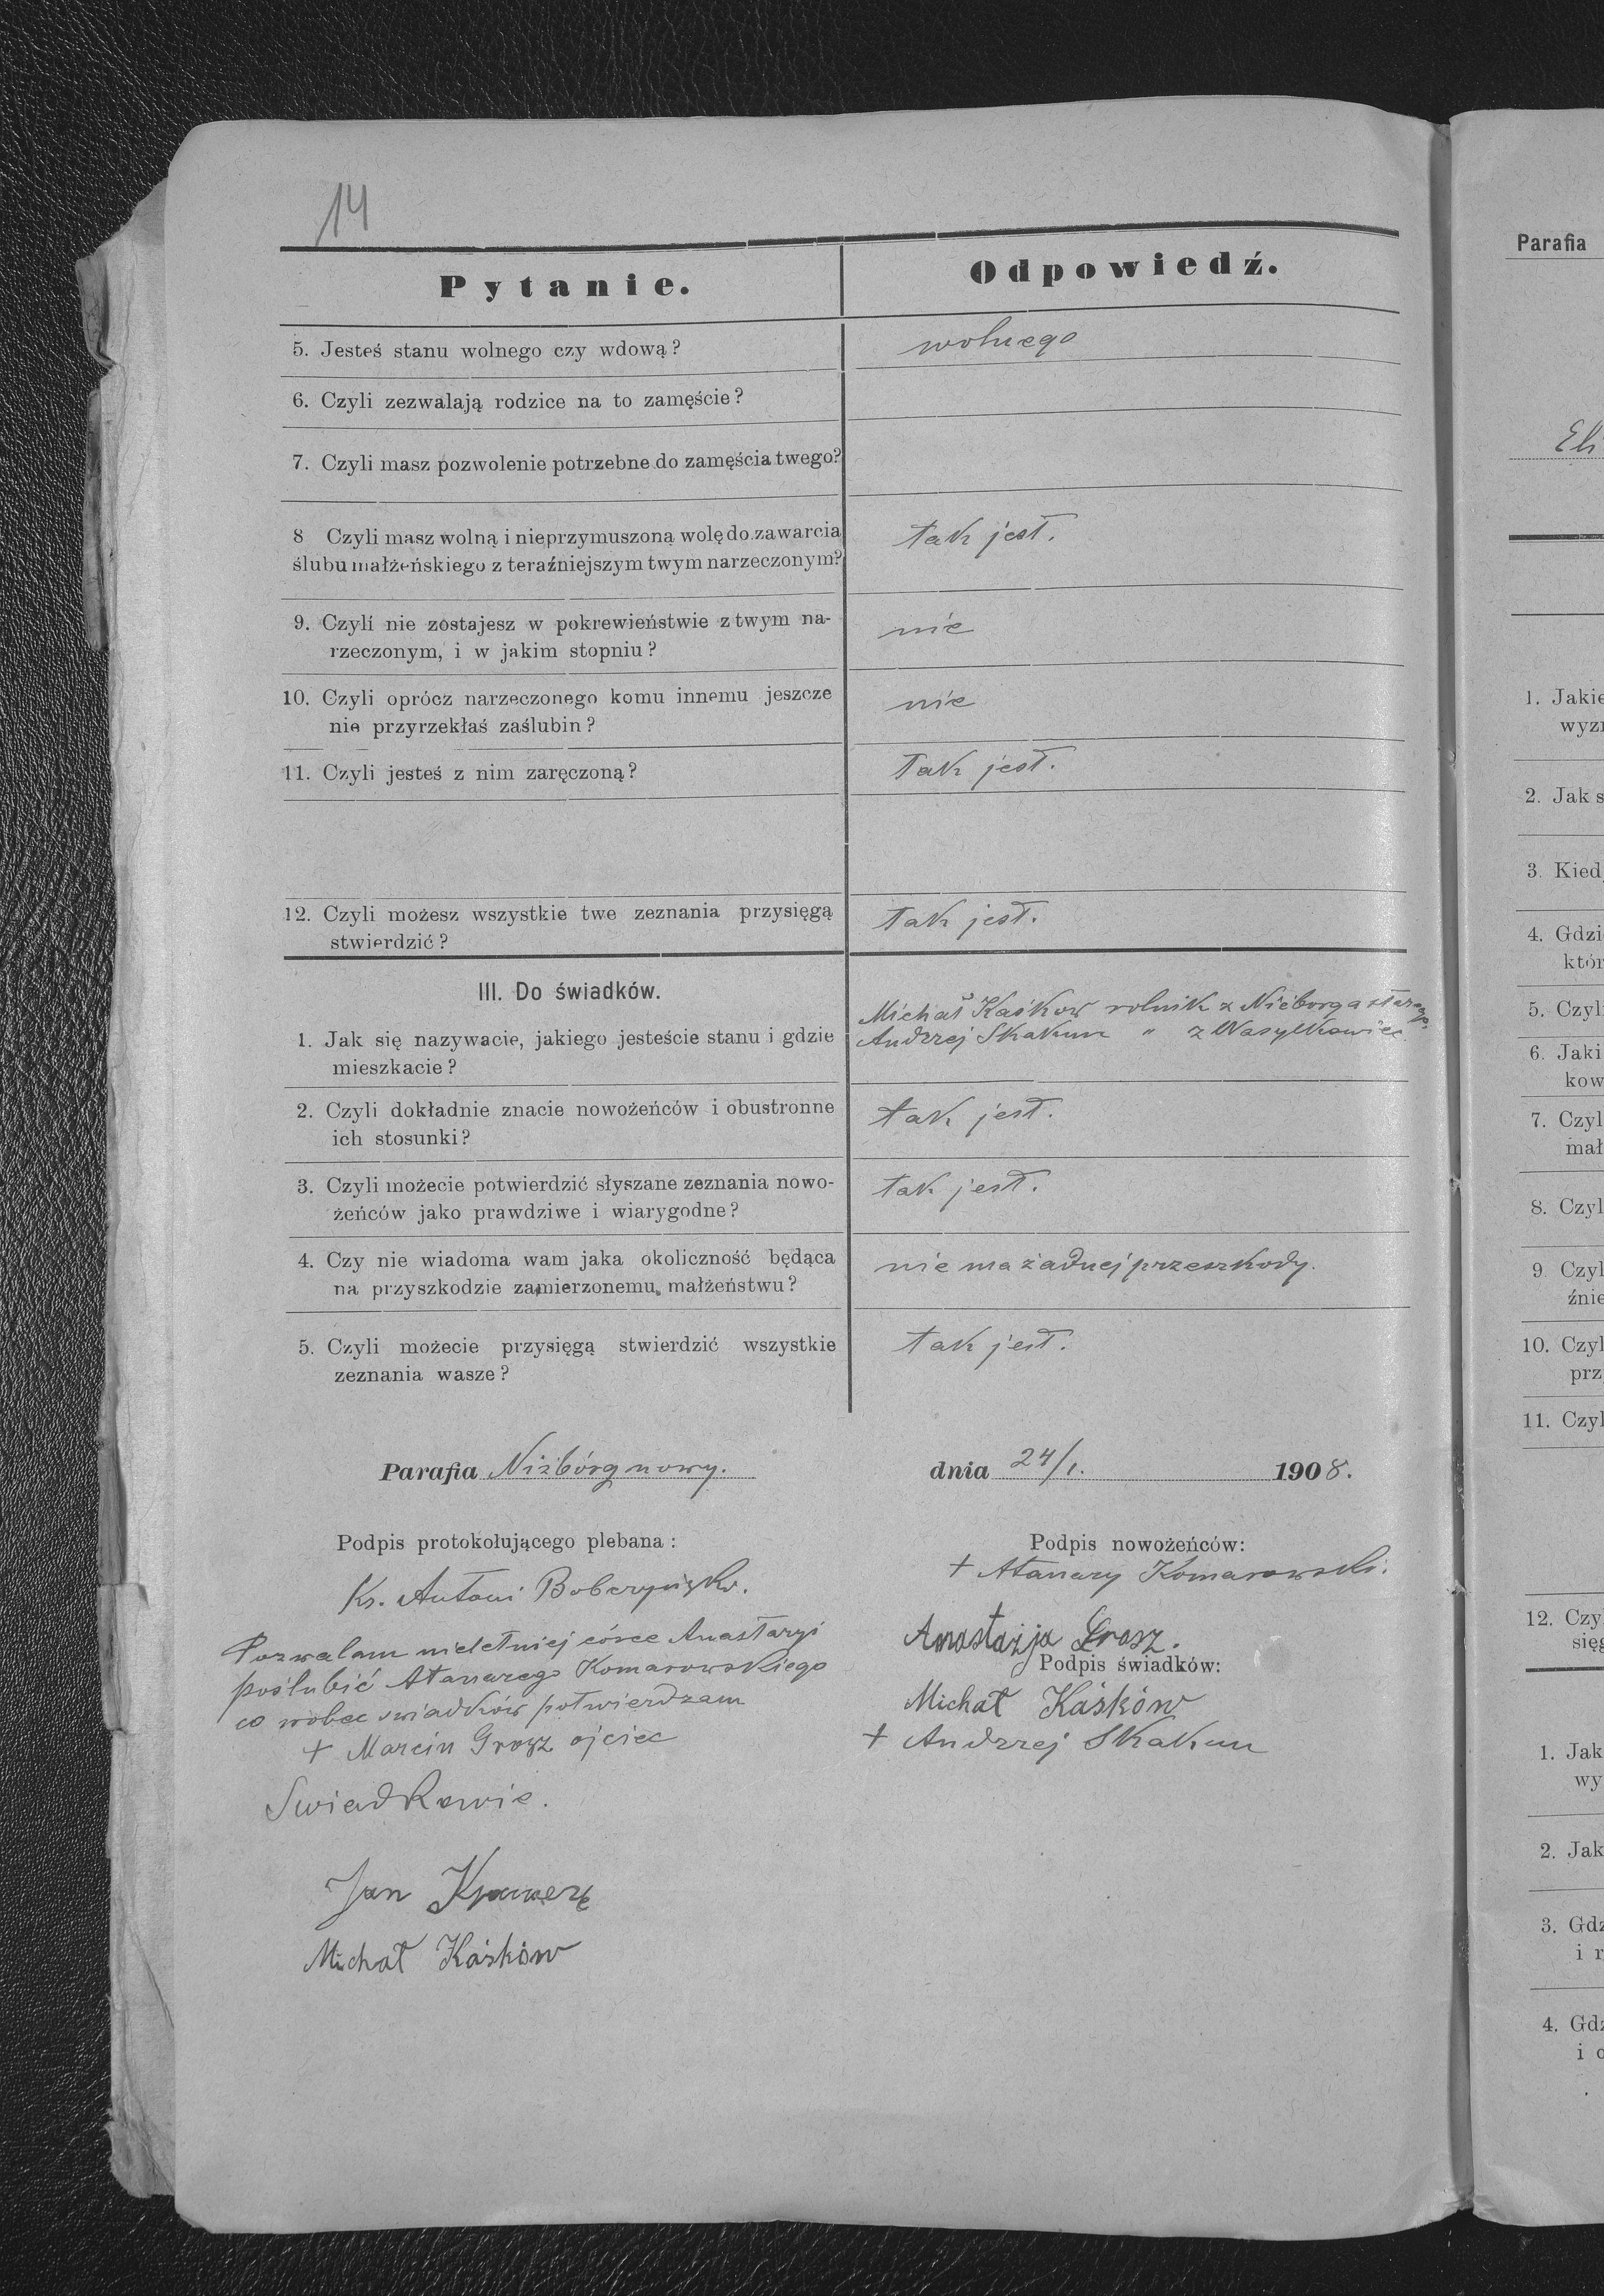 14
Pytanie. Odpowiedź.
5. Jesteś stanu wolnego czy wdową? wolnego
6. Czyli zezwalają rodzice na to zamęście?
7. Czyli masz pozwolenie potrzebne do zamęścia twego?
8 Czyli masz wolną i nieprzymuszoną wolę do zawarcia tak jest.
ślubu małżeńskiego z teraźniejszym twym narzeczonym?
9. Czyli nie zostajesz w pokrewieństwie z twym na- nie
rzeczonym, i w jakim stopniu?
10. Czyli oprócz narzeczonego komu innemu jeszcze nie
nie przyrzekłaś zaślubin?
11. Czyli jesteś z nim zaręczoną? Tak jest.
12. Czyli możesz wszystkie twe zeznania przysięgą tak jest.
stwierdzić?
III. Do świadków.
Michał Kaśkow rolnik z Niżborga starego.
1. Jak się nazywacie, jakiego jesteście stanu i gdzie Andrzej Skakun " z Wasylkowiec
mieszkacie?
2. Czyli dokładnie znacie nowożeńców i obustronne tak jest.
ich stosunki?
3. Czyli możecie potwierdzić słyszane zeznania nowo- tak jest.
żeńców jako prawdziwe i wiarygodne?
4. Czy nie wiadoma wam jaka okoliczność będąca nie ma żadnej przeszkody.
na przyszkodzie zamierzonemu małżeństwu?
5. Czyli możecie przysięgą stwierdzić wszystkie tak jest.
zeznania wasze?
Parafia Niżbórg nowy. dnia 24/1. 1908.
Podpis protokołującego plebana: Podpis nowożeńców:
+ Atanazy Komarowski.
Ks. Antoni
Anastazja Grosz.
Pozwalam nieletniej córce Anastazyi
Podpis świadków:
poślubić Atanazego Komarowskiego
Michał Kaśków
co wobec świadków potwierdzam
+ Andrzej Skakun
+ Marcin Grosz ojciec
Swiadkowie.
Jan
Michał Kaśków
Parafia
1. Jakie
2. Jak
3. Kied
4. Gdzi
któr
5. Czyl
6. Jaki
kow
7. Czyl
mał
8. Czyl
9 Czyl
źnie
10. Czyl
prz
11. Czyl
12. Czy
się
1. Jak
wy
2. Jak
3. Gdz
i
4. Gdz
i